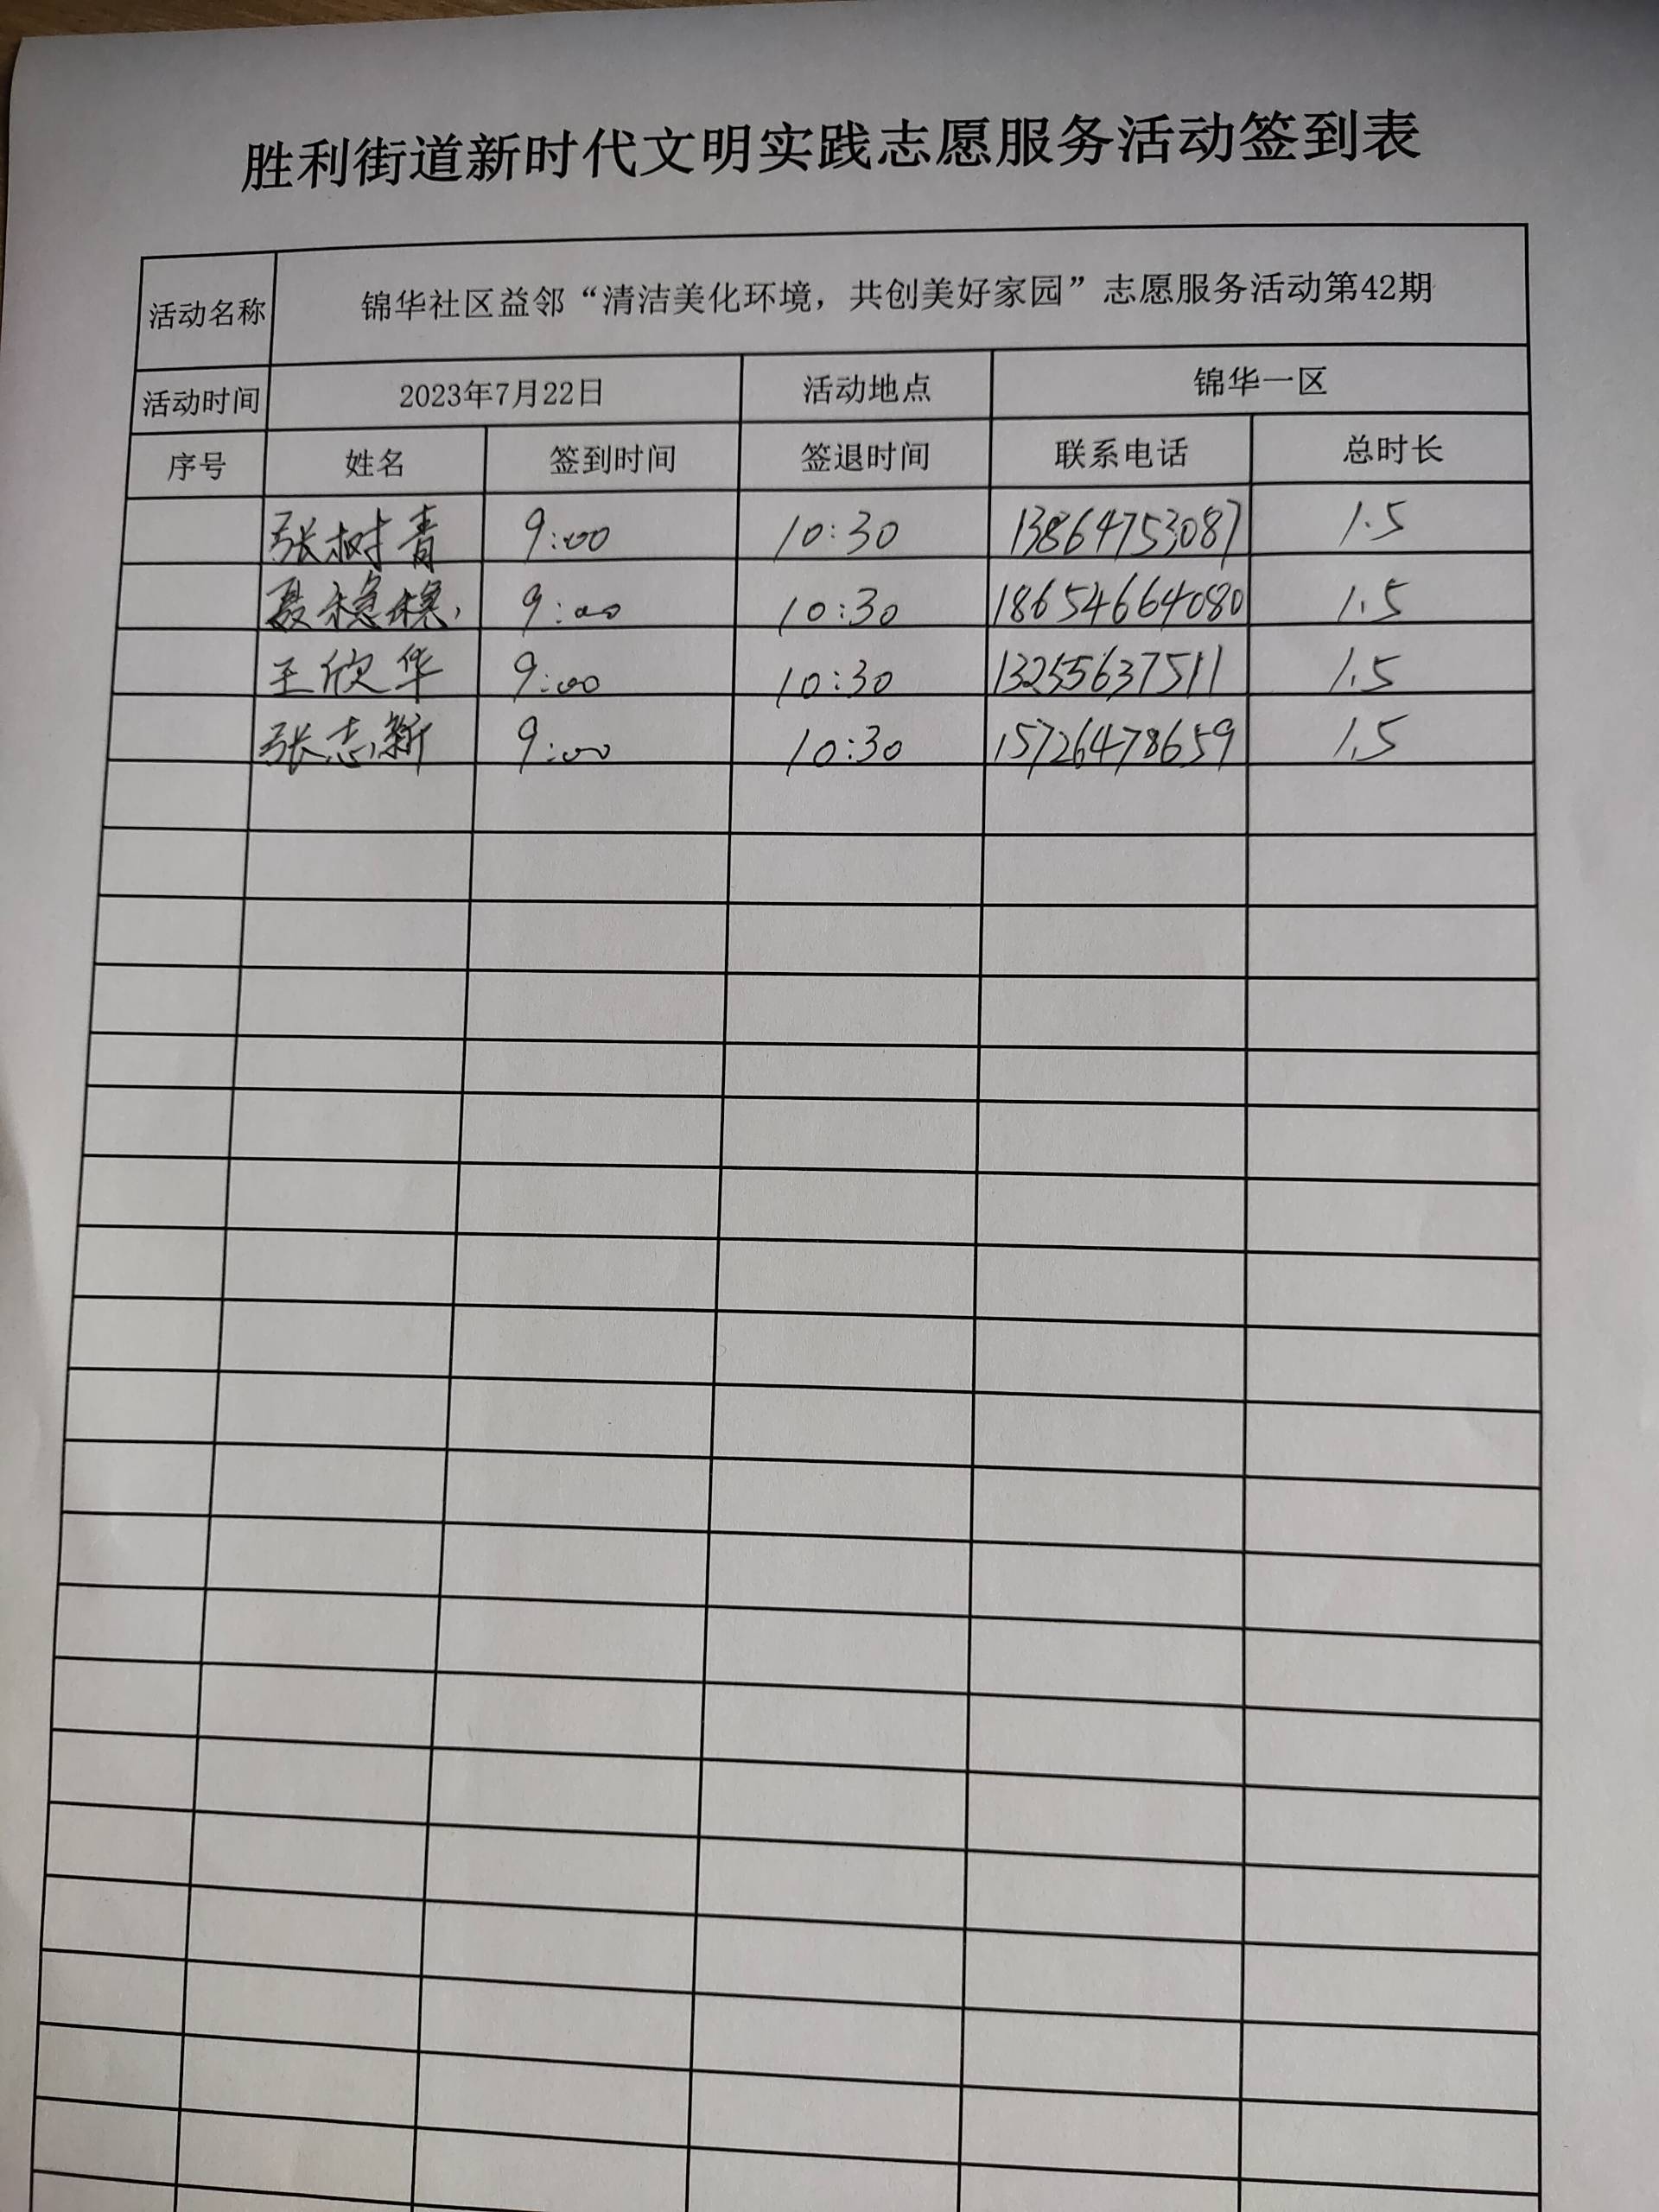 胜利街道新时代文明实践志愿服务活动签到表
活动名称 锦华社区益邻“清洁美化环境，共创美好家园”志愿服务活动第42期
活动时间 2023年7月22日 活动地点 锦华一区
序号 姓名 签到时间 签退时间 联系电话 总时长
张树青 9:00 10:30 13864753087 1.5
聂稳稳 9:00 10:30 18654664080 1.5
王欣华 9:00 10:30 13255637511 1.5
张志新 9:00 10:30 15726478659 1.5